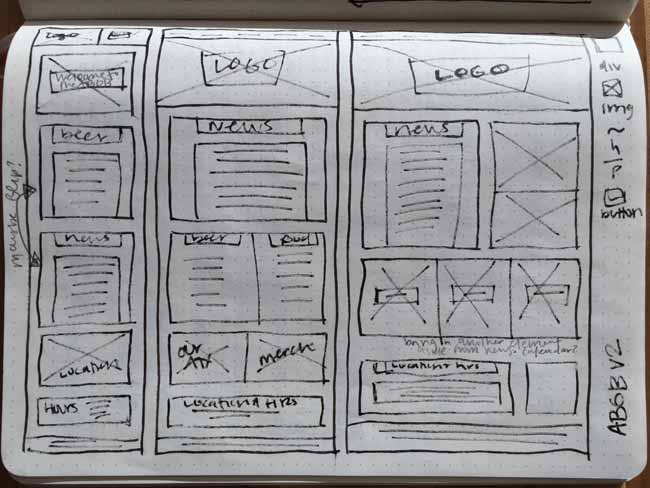 Logo
Welcome to
beer
news
LOCATIONS
HOURS
maybe flip?
LOGO
NEWS
beer
food
our
ATX
merch
LOCATION & HRS
LOGO
news
bring in another element
aside from news. calendar?
LOCATION & HRS
div
img
button
ABGB V2